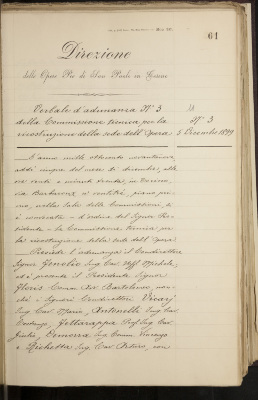 61
Direzione
delle Opere Pie di San Paolo in Torino
Verbale d'adunanza N° 3
della Commissione tecnica per la
ricostruzione della sede dell'Opera
N° 3
5 Dicembre 1899
L'anno mille ottocento novantanove
addì cinque del mese di dicembre, alle
ore venti e minuti trenta, in Torino,
via Barbaroux, n° ventitré, piano pri-
mo, nella sala delle Commissioni, si
è convocata - d'ordine del Signor Pre-
sidente - la Commissione tecnica per
la ricostruzione della sede dell'Opera
Presiede l'adunanza il Conduttore
Signor Fenolio Ing. Cav. Uff. Michele,
ed è presente il Presidente Signor
Floris Comm. Avv. Bartolomeo, non-
chè i Signori Conduttori Vicarj
Ing. Cav. Mario, Antonelli Ing. Cav.
Costanzo, Fettarappa Prof. Ing. Cav.
Giulio, Ing. Comm.
e Richetta Ing. Cav. Pietro, con